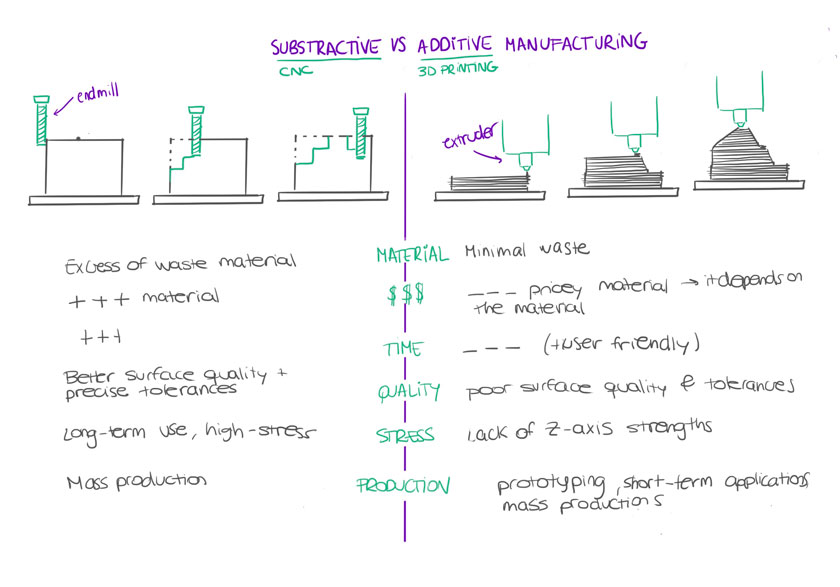 SUBSTRACTIVE VS ADDITIVE MANUFACTURING
CNC
3D PRINTING
endmill
extruder
Excess of waste material
MATERIAL
Minimal waste
+ + + material
$$$
--- pricey material → it depends on
the material
+++
TIME
--- (+user friendly)
Better surface quality +
precise tolerances
QUALITY
poor surface quality & tolerances
Long-term use, high-stress
STRESS
Lack of Z-axis strengths
Mass production
PRODUCTION
prototyping, short-term application,
mass productions